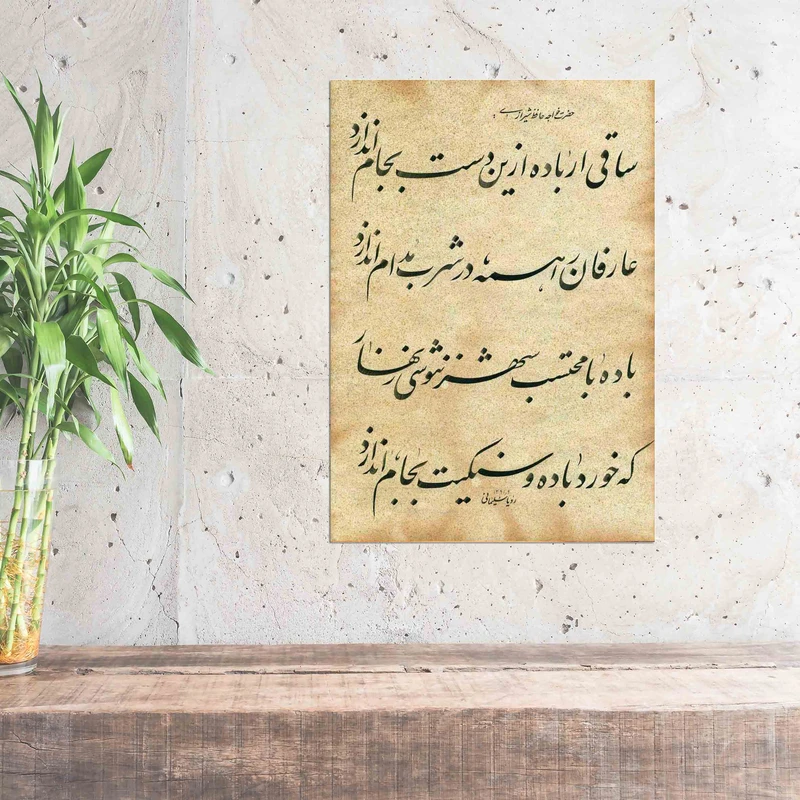 حضرت خواجه حافظ شیرازی
ساقی ار باده ازین دست بجام اندازد
عارفان را همه در شرب مدام اندازد
باده با محتسب شهر ننوشی زنهار
که خورد باده و سنگت بجام اندازد